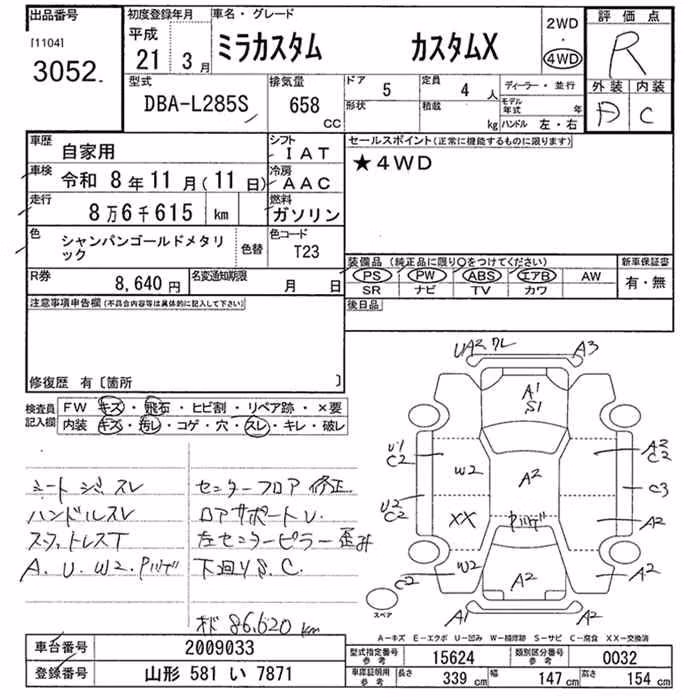 出品番号
[1104]
3052.
初度登録年月
平成
21 3 月
車名・グレード
ミラカスタム カスタムX
2WD
・
4WD
評価点
R
外装 内装
A C
型式
DBA-L285S
排気量
658
CC
ドア 5
形状
定員 4 人
積載 kg
ディーラー・並行
モデル年式 年
ハンドル 左・右
車歴 自家用
シフト IAT
車検 令和 8年 11月(11日)
冷房 AAC
走行 8万6千615 km
燃料 ガソリン
色 シャンパンゴールドメタリック
色替
色コード T23
R券 8,640円
名変通知期限 月 日
セールスポイント(正常に機能するものに限ります)
★4WD
装備品 (純正品に限り○をつけてください)
PS PW ABS エアB AW
SR ナビ TV カワ
新車保証書
有・無
後日品
注意事項申告欄(不具合内容等は具体的に記入して下さい)
修復歴 有〔箇所 〕
検査員記入欄
FW キズ・飛石・ヒビ割・リペア跡・×要
内装 キズ・汚レ・コゲ・穴・スレ・キレ・破レ
シートシミ、スレ
ハンドルスレ
スタットレスT
A. U. W2. Pハゲ
センターフロア修正
ロアサポートU.
左センターピラー歪み
下廻りS.C.
メド 86,620 km
UA2 ワレ A3
A1
S1
U1
C2
W2
A2
A2
C2
C3
U2
C2
XX
Pハゲ
A2
C2
W2
A2
A2
A1
A2
スペア
A-キズ E-エクボ U-凹み W-補修跡 S-サビ C-腐食 XX-交換済
車台番号 2009033
登録番号 山形 581 い 7871
型式指定番号 参考 15624
類別区分番号 参考 0032
車庫証明用 参考 長さ 339 cm 幅 147 cm 高さ 154 cm